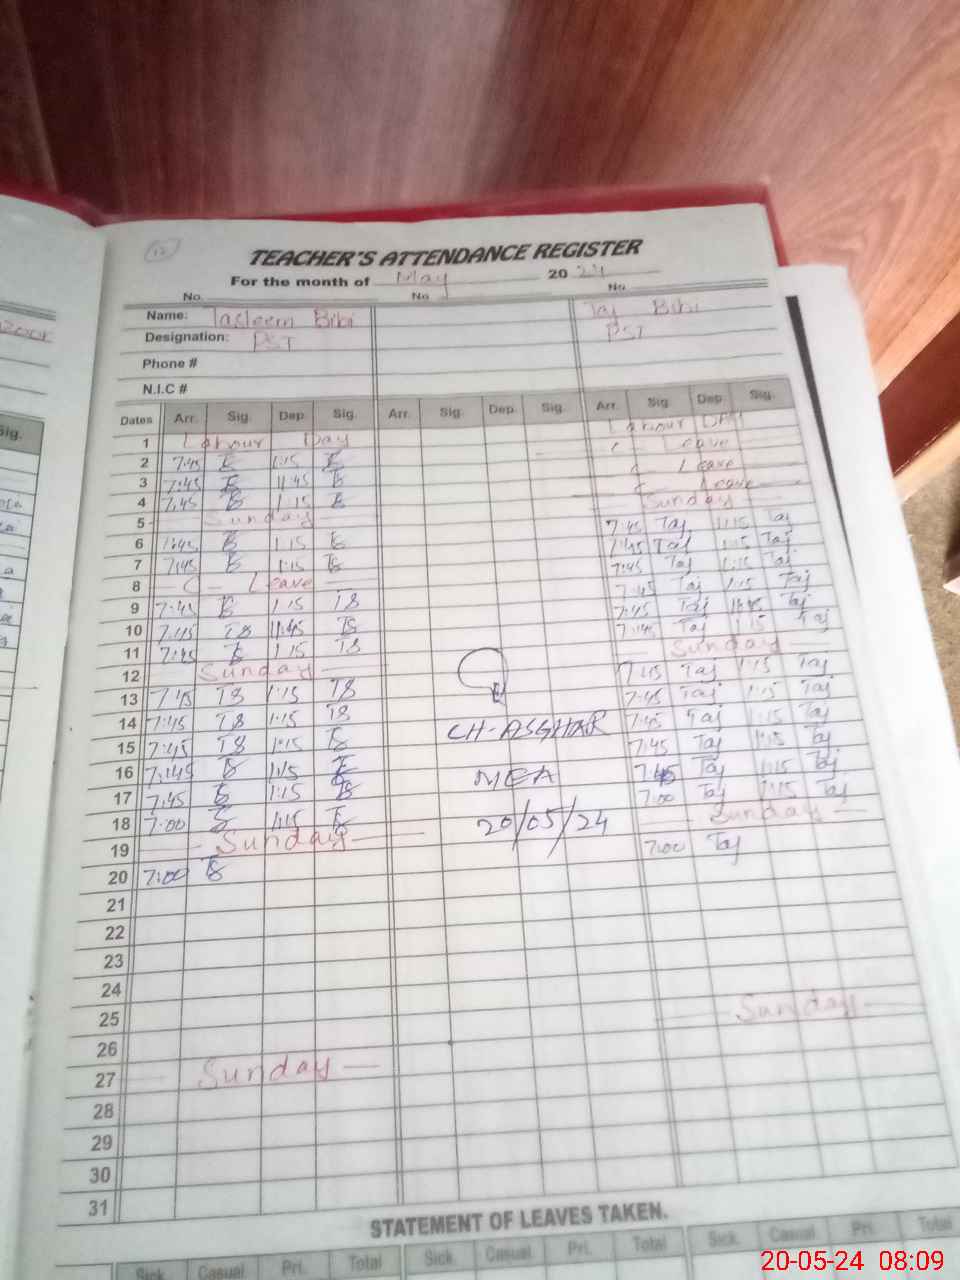 TEACHER'S ATTENDANCE REGISTER
For the month of May 2024
No. No. No.
Name: Tasleem Bibi Taj Bibi
Designation: PST PST
Phone #
N.I.C #
Dates Arr. Sig. Dep. Sig. Arr. Sig. Dep. Sig. Arr. Sig. Dep. Sig.
1 Labour Day Labour Day
2 7:45 1:15 Leave
3 7:45 11:45 Leave
4 7:45 1:15 Leave
5 Sunday Sunday
6 7:45 1:15 7:45 Taj 1:15 Taj
7 7:45 1:15 7:45 Taj 1:15 Taj
8 Leave 7:45 Taj 1:15 Taj
9 7:45 1:15 TB 7:45 Taj 1:15 Taj
10 7:45 TB 11:45 TB 7:45 Taj 11:45 Taj
11 7:45 1:15 TB 7:45 Taj 1:15 Taj
12 Sunday Sunday
13 7:45 TB 1:15 TB 7:45 Taj 1:15 Taj
14 7:45 TB 1:15 TB 7:45 Taj 1:15 Taj
15 7:45 TB 1:15 CH-ASGHAR 7:45 Taj 1:15 Taj
16 7:45 1:15 7:45 Taj 1:15 Taj
17 7:45 1:15 MEA 7:45 Taj 1:15 Taj
18 7:00 1:15 20/05/24 7:00 Taj 1:15 Taj
19 Sunday Sunday
20 7:00 7:00 Taj
21
22
23
24
25
26 Sunday
27 Sunday
28
29
30
31
STATEMENT OF LEAVES TAKEN.
Sick Casual Pri. Total Sick Casual Pri. Total Sick Casual Pri. Total
20-05-24 08:09